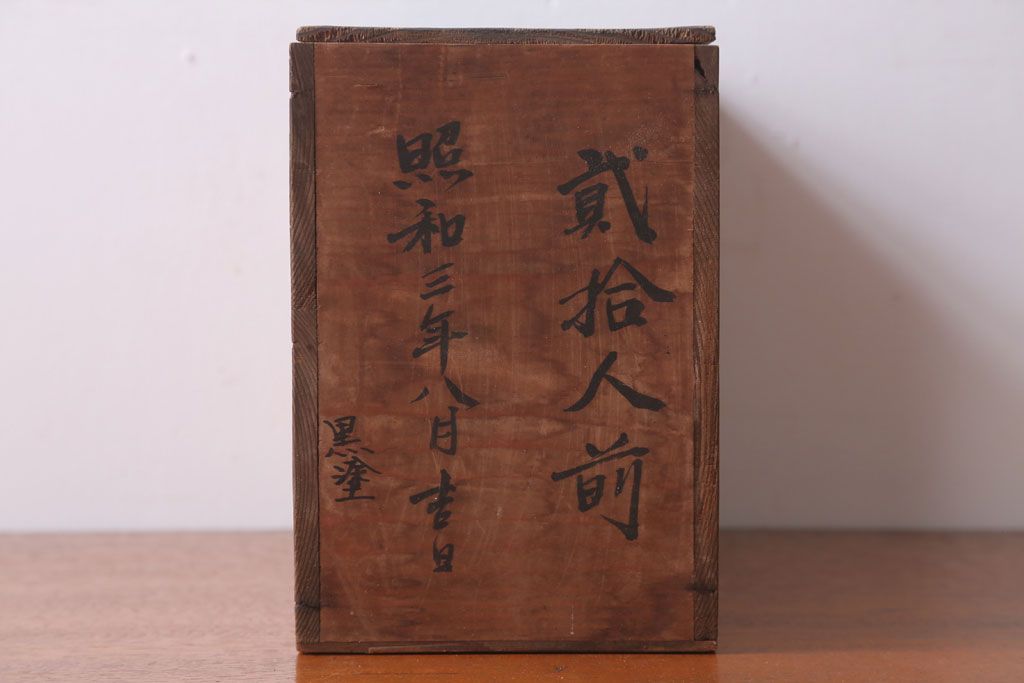 貳拾人前
昭和三年八月吉日
黒塗